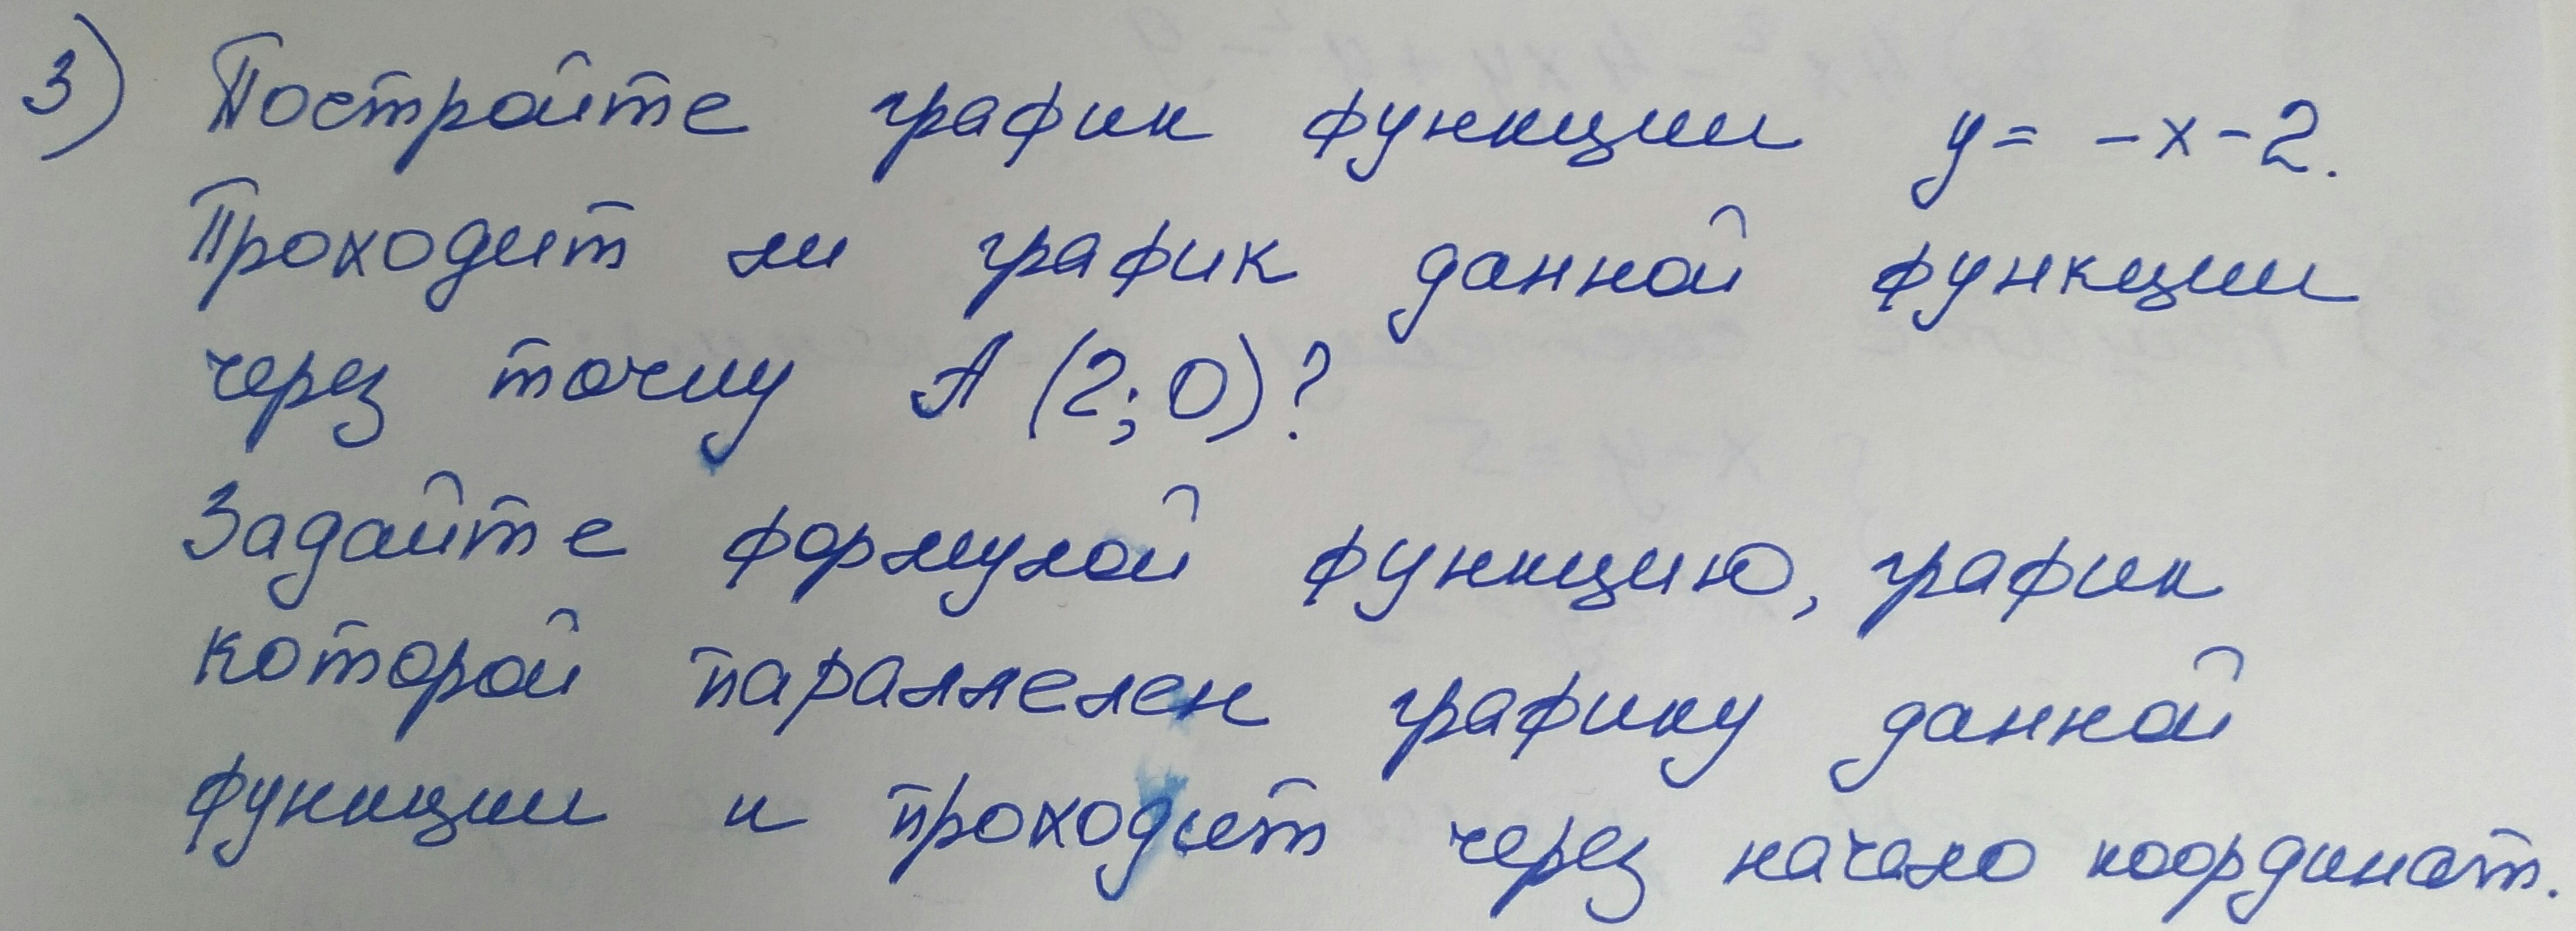 3) Постройте график функции y = -x-2.
Проходит ли график данной функции
через точку А (2; 0)?
Задайте формулой функцию, график
которой параллелен графику данной
функции и проходит через начало координат.